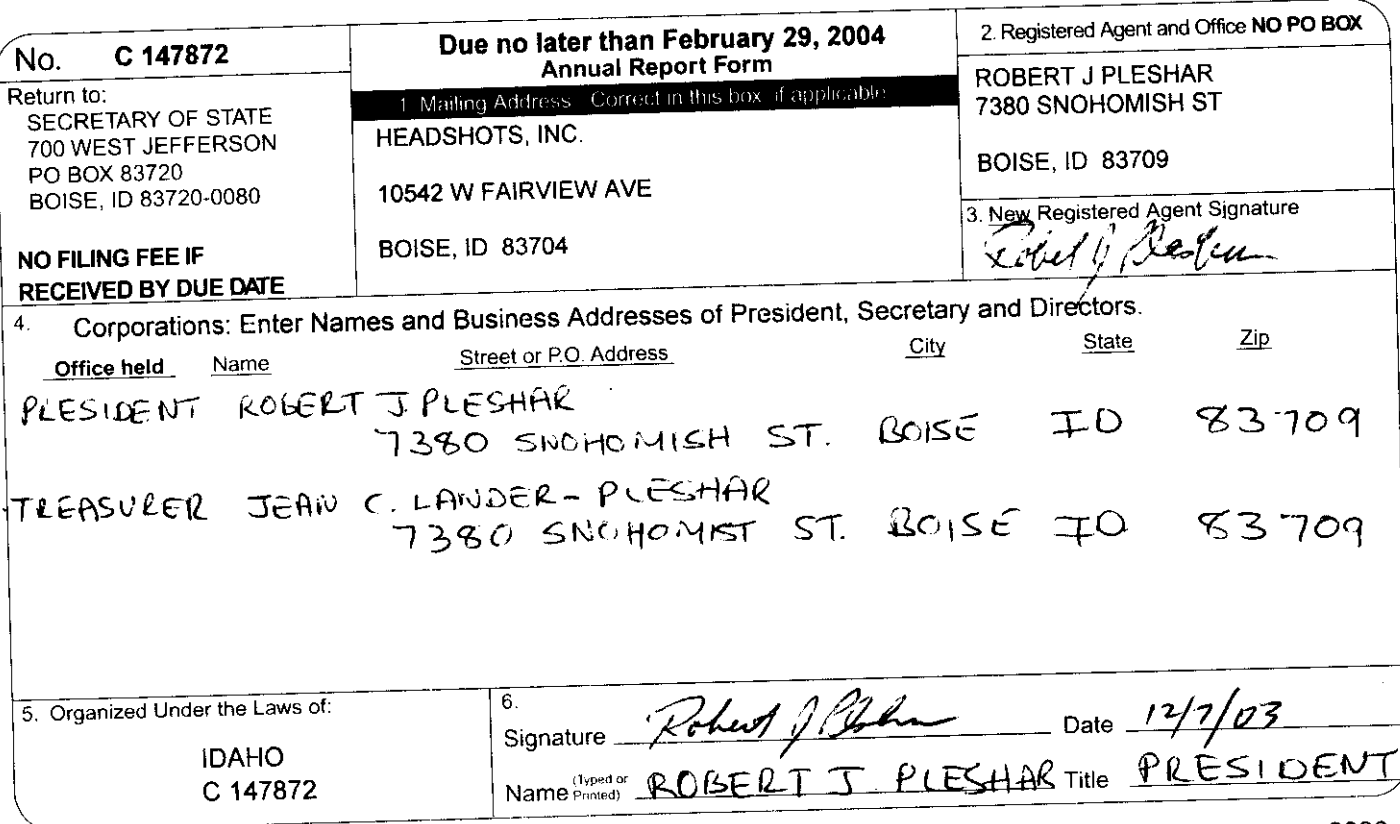 No. C 147872
Return to:
SECRETARY OF STATE
700 WEST JEFFERSON
PO BOX 83720
BOISE, ID 83720-0080
NO FILING FEE IF
RECEIVED BY DUE DATE
Due no later than February 29, 2004
Annual Report Form
1. Mailing Address Correct in this box if applicable
HEADSHOTS, INC.
10542 W FAIRVIEW AVE
BOISE, ID 83704
2. Registered Agent and Office NO PO BOX
ROBERT J PLESHAR
7380 SNOHOMISH ST
BOISE, ID 83709
3. New Registered Agent Signature
Robert J Pleshar
4. Corporations: Enter Names and Business Addresses of President, Secretary and Directors.
Office held Name Street or P.O. Address City State Zip
PRESIDENT ROBERT J. PLESHAR
7380 SNOHOMISH ST. BOISE ID 83709
TREASURER JEAN C. LANDER-PLESHAR
7380 SNOHOMIST ST. BOISE ID 83709
5. Organized Under the Laws of:
IDAHO
C 147872
6.
Signature Robert J Pleshar Date 12/7/03
Name (Typed or Printed) ROBERT J PLESHAR Title PRESIDENT